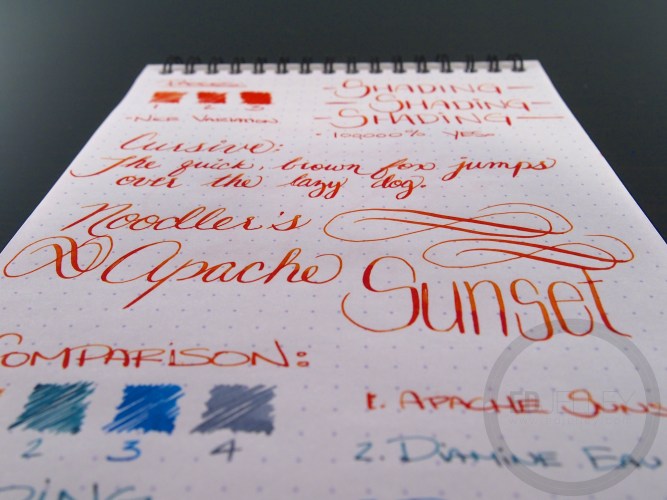 SHADING
1 2 3
SHADING
- NICE VARIATION
SHADING
• 100,000% YES
Cursive:
The quick, brown fox jumps
over the lazy dog.
Noodler's
Apache
Sunset
COMPARISON:
1. APACHE SUNS
2 3 4
2. DIAMINE EAU